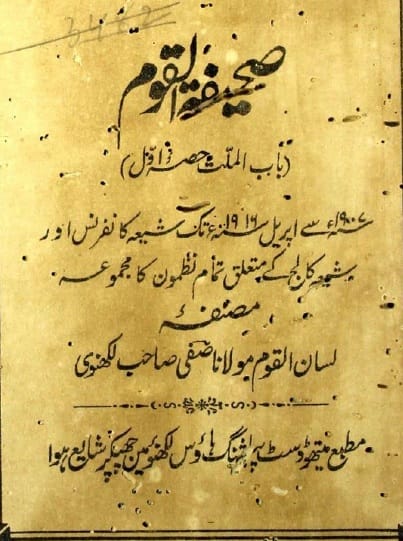 3482
صحیفۃ القوم
(باب الملت حصہ اوّل)
سنہ ۱۹۰۷ء سے اپریل سنہ ۱۹۱۶ء تک شیعہ کانفرنس اور
شیعہ کالج کے متعلق تمام نظمون کا مجموعہ
مصنفہٴ
لسان القوم مولانا صفی صاحب لکھنوی
مطبع میتھوڈسٹ پبلشنگ ہاؤس لکھنؤ مین چھپکر شایع ہوا